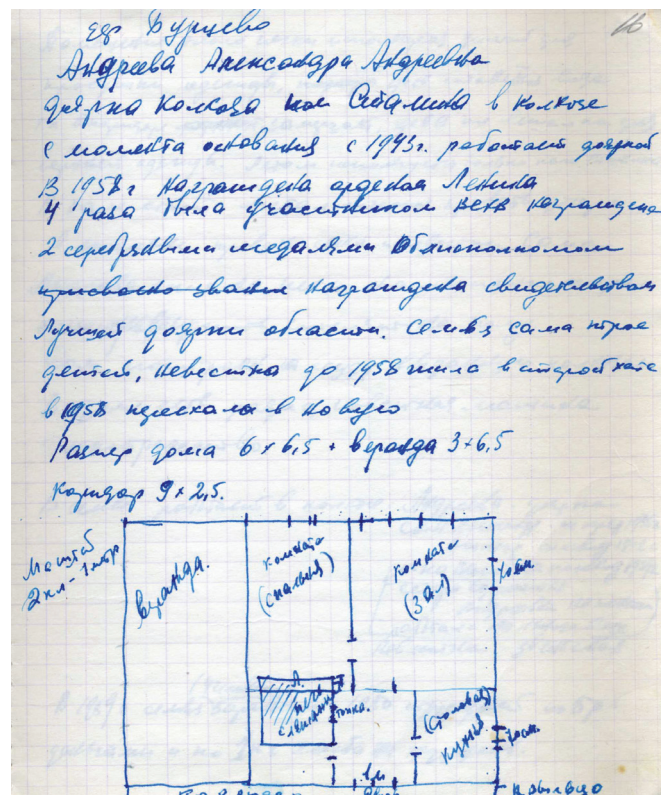 дер Бурцево
Андреева Александра Андреевна
доярка колхоза им Сталина в колхозе
с момента основания с 1943г. работает дояркой
В 1958 г награждена орденом Ленина
4 раза была участником ВСХВ награждена
2 серебряными медалями Облисполкомом
присвоено звание награждена свидетельством
Лучшей доярки области. Семья сама трое
детей, невестка до 1958 жила в старой хате
в 1958 переехала в новую
Размер дома 6 x 6,5 + веранда 3 x 6,5
Коридор 9 x 2,5.
Масштаб
2кл - 1метр
веранда.
комната
(спальня)
комната
(зал)
70 см.
печь
лежанка
топка.
(столовая)
кухня
70 см.
1м
крыльцо